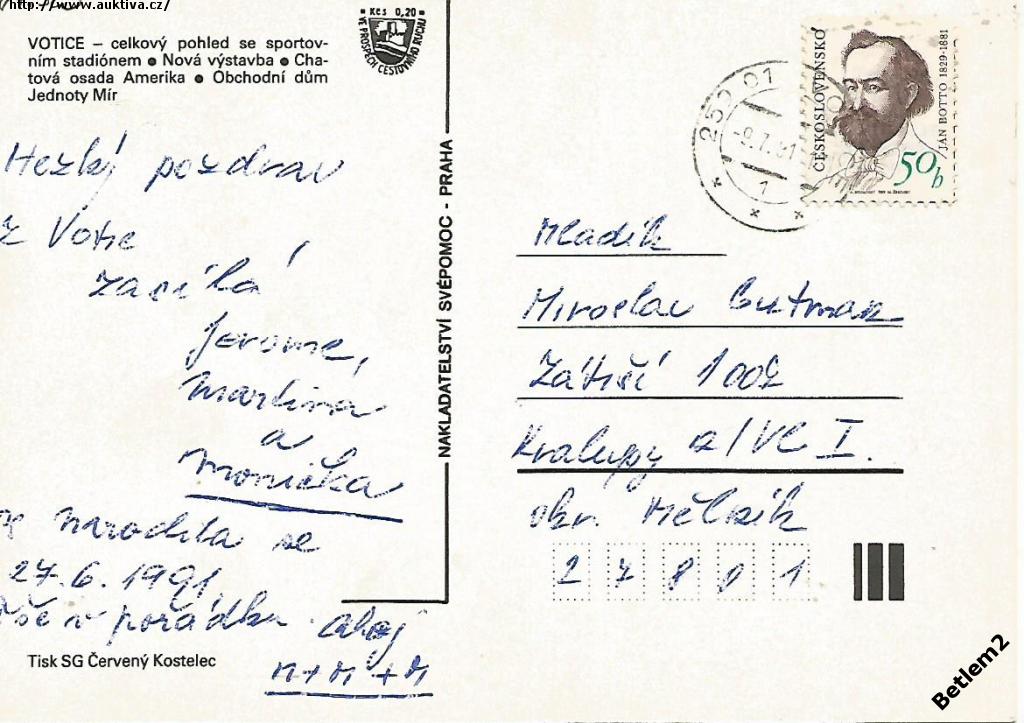 http://www.auktiva.cz/
VOTICE – celkový pohled se sportov-
ním stadiónem ● Nová výstavba ● Cha-
tová osada Amerika ● Obchodní dům
Jednoty Mír
Kčs 0,20
VE PROSPĚCH CESTOVNÍHO RUCHU
Hezký pozdrav
z Votic
zasílá
Martina
a
Monička
narodila se
27.6.1991
vše v pořádku ahoj
M+M
Tisk SG Červený Kostelec
NAKLADATELSTVÍ SVÉPOMOC - PRAHA
259 01
-9.7.91
1
ČESKOSLOVENSKO
JAN BOTTO 1829-1881
50h
Mladík
Miroslav Gutman
Zátiší 1002
Kralupy n/Vl I.
okr. Mělník
27801
Betlem2